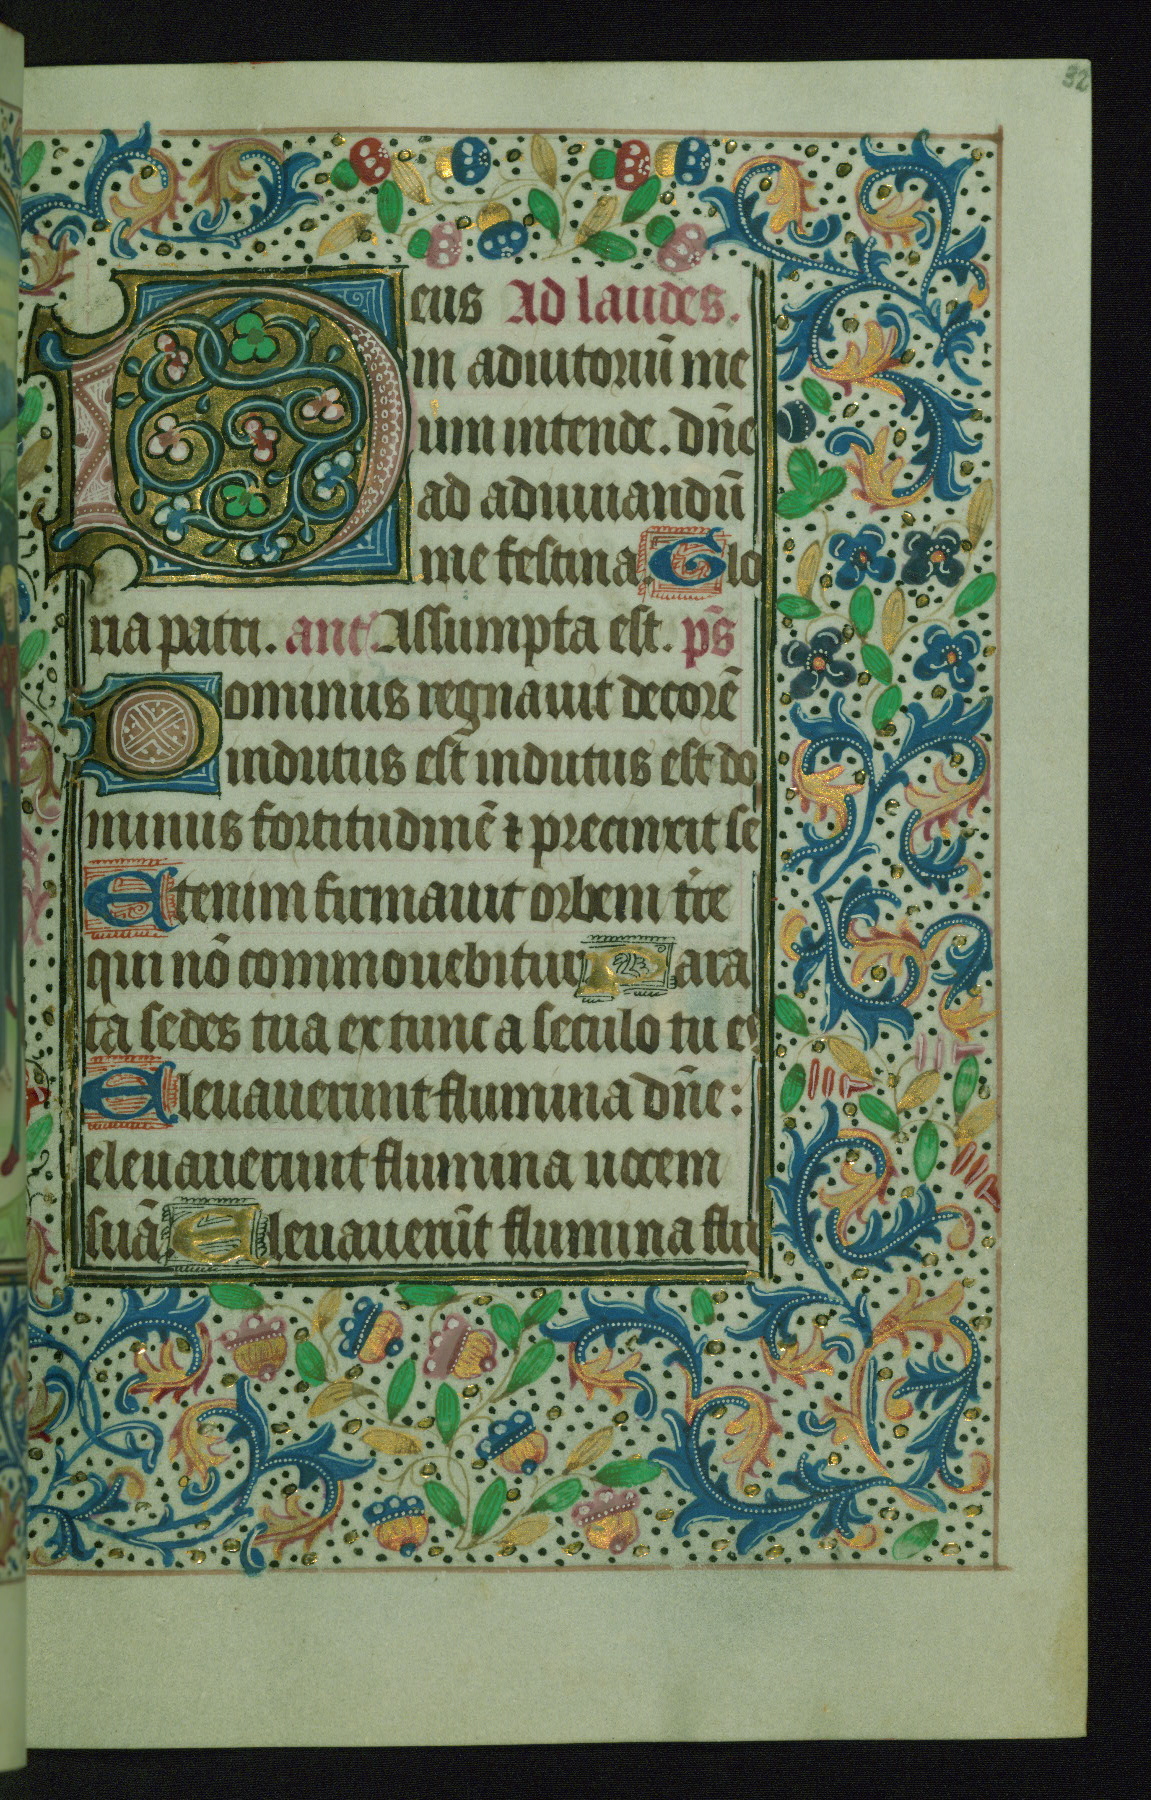 32
Deus Ad laudes.
in adiutoriū me
um intende. dn̄e
ad adiuuandū
me festina. Glo
ria patri. ant̄ Assumpta est. ps̄
Dominus regnauit decorē
indutus est indutus est do
minus fortitudinē ⁊ precinxit se
Etenim firmauit orbem tr̄e
qui nō commouebitur Para
ta sedes tua ex tunc a seculo tu es
Eleuauerunt flumina dn̄e:
eleuauerunt flumina uocem
suā Eleuauerūt flumina flu